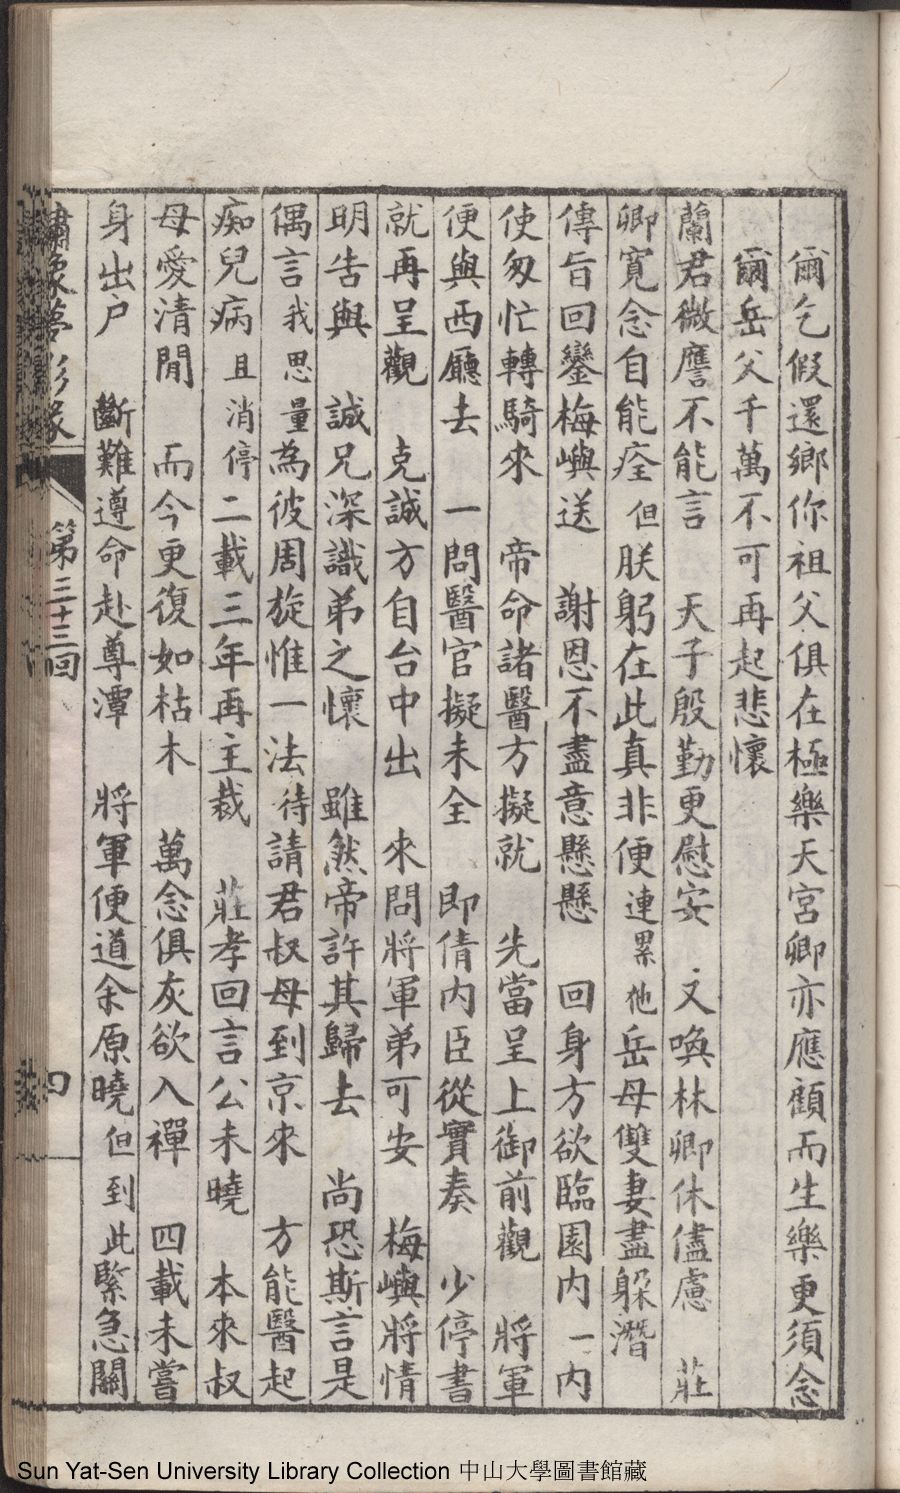 爾乞假還鄉你祖父俱在極樂天宮卿亦應顧而生樂更須念
爾岳父千萬不可再起悲懷
蘭君微譍不能言 天子殷勤更慰安 又喚林卿休儘慮 莊
卿寬念自能痊但朕躬在此真非便連累他岳母雙妻盡躲潛
傳旨回鑾梅嶼送 謝恩不盡意懸懸 回身方欲臨園内 一内
使匆忙轉騎來 帝命諸醫方擬就 先當呈上御前觀 將軍
便與西廳去 一問醫官擬未全 即倩内臣從實奏 少停書
就再呈觀 克誠方自台中出 來問將軍弟可安 梅嶼將情
明告與 誠兄深識弟之懷 雖然帝許其歸去 尚恐斯言是
偶言我思量為彼周旋惟一法待請君叔母到京來 方能醫起
痴兒病且消停二載三年再主裁 莊孝回言公未曉 本來叔
母愛清閒 而今更復如枯木 萬念俱灰欲入禪 四載未嘗
身出户 斷難遵命赴尊潭 將軍便道余原曉但到此緊急關
繡像夢影緣 第三十三回 四
Sun Yat-Sen University Library Collection 中山大學圖書館藏